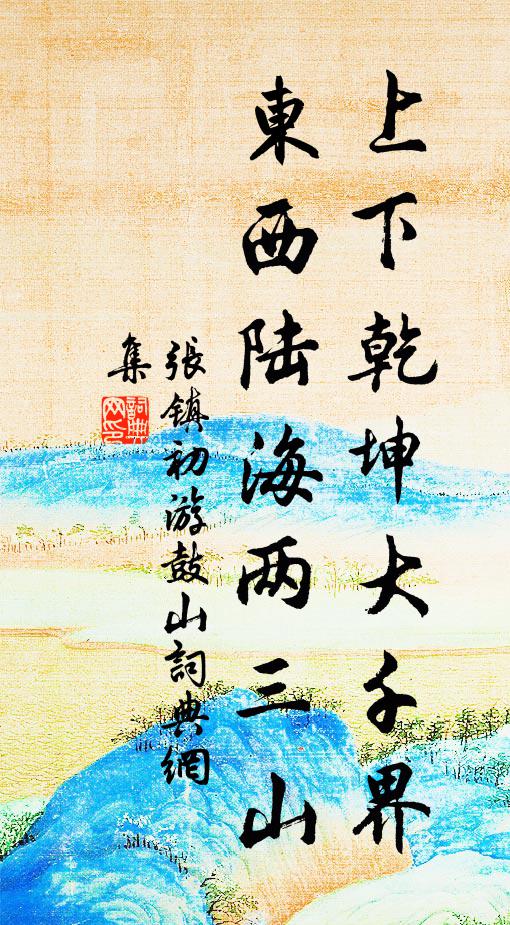 上下乾坤大千界
東西陆海两三山
張鎮初游鼓山詞典網
集
詞典網印